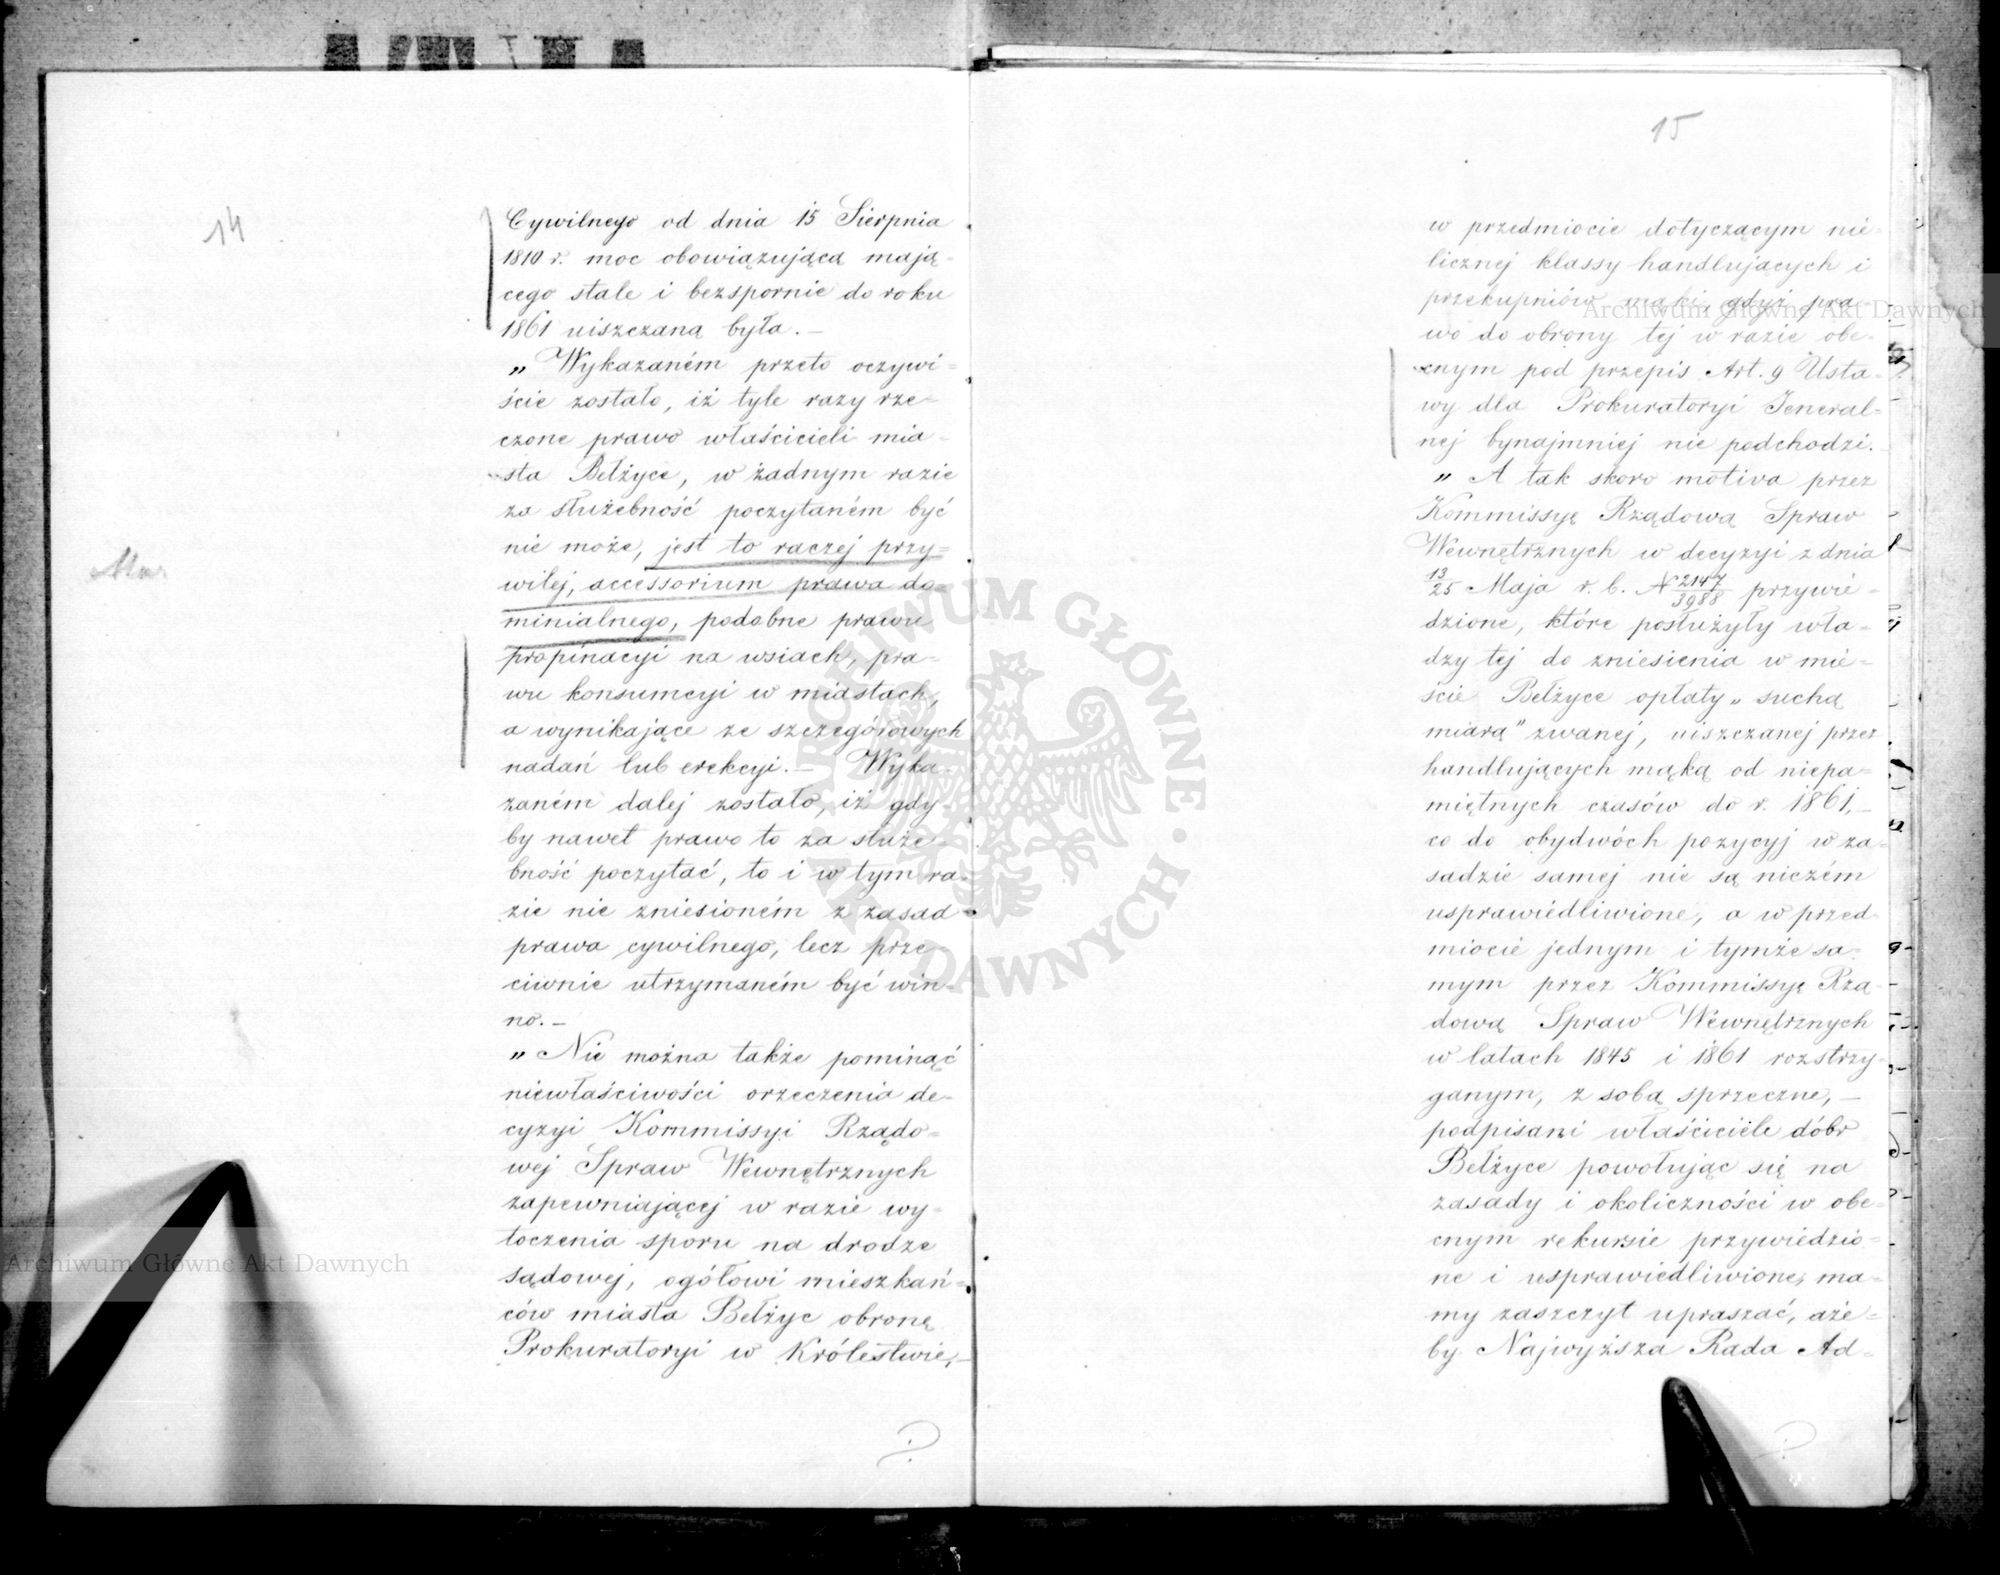 14
Cywilnego od dnia 15 Sierpnia
1810 r. moc obowiązującą mają-
cego stale i bezspornie do roku
1861 uiszczaną była. —
„ Wykazaném przeto oczywi-
ście zostało, iż tyle razy rze-
czone prawo właścicieli mia-
sta Bełżyce, w żadnym razie
za służebność poczytaném być
nie może, jest to raczej przy=
wilej, accessorium prawa do-
minialnego, podobne prawu
propinacyi na wsiach, pra-
wu konsumcyi w miastach,
a wynikające ze szczegółowych
nadań lub erekcyi. — Wyka-
zaném dalej zostało, iż gdy-
by nawet prawo to za służe-
bność poczytać, to i w tym ra-
zie nie zniesioném z zasad
prawa cywilnego, lecz prze-
ciwnie utrzymaném być win-
no. —
„ Nie można także pominąć
niewłaściwości orzeczenia de-
cyzyi Kommissyi Rządo=
wej Spraw Wewnętrznych
zapewniającej w razie wy-
toczenia sporu na drodze
sądowej, ogółowi mieszkań=
ców miasta Bełżyc obronę
Prokuratoryi w Królestwie, —
15
w przedmiocie dotyczącym nie-
licznej klassy handlujących i
przekupniów mąki, gdyż pra-
wo do obrony tej w razie obe-
cnym pod przepis Art. 9 Usta-
wy dla Prokuratoryi Jeneral=
nej bynajmniej nie podchodzi.
„ A tak skoro motiva przez
Kommissyę Rządową Spraw
Wewnętrznych w decyzyi z dnia
13/25 Maja r. b. N 2147/3988 przywie-
dzione, które posłużyły wła-
dzy tej do zniesienia w mie=
ście Bełżyce opłaty „ suchą
miarą” zwanej, uiszczanej przez
handlujących mąką od niepa=
miętnych czasów do r. 1861, —
co do obydwóch pozycyj w za-
sadzie samej nie są niczém
usprawiedliwione, a w przed-
miocie jednym i tymże sa-
mym przez Kommissyę Rzą-
dową Spraw Wewnętrznych
w latach 1845 i 1861 rozstrzy-
ganym, z sobą sprzeczne, —
podpisani właściciele dóbr
Bełżyce powołując się na
zasady i okoliczności w obe-
cnym rekursie przywiedzio=
ne i usprawiedliwione, ma-
my zaszczyt upraszać, aże=
by Najwyższa Rada Ad=
Archiwum Główne Akt Dawnych
Archiwum Główne Akt Dawnych
ARCHIWUM GŁÓWNE AKT DAWNYCH